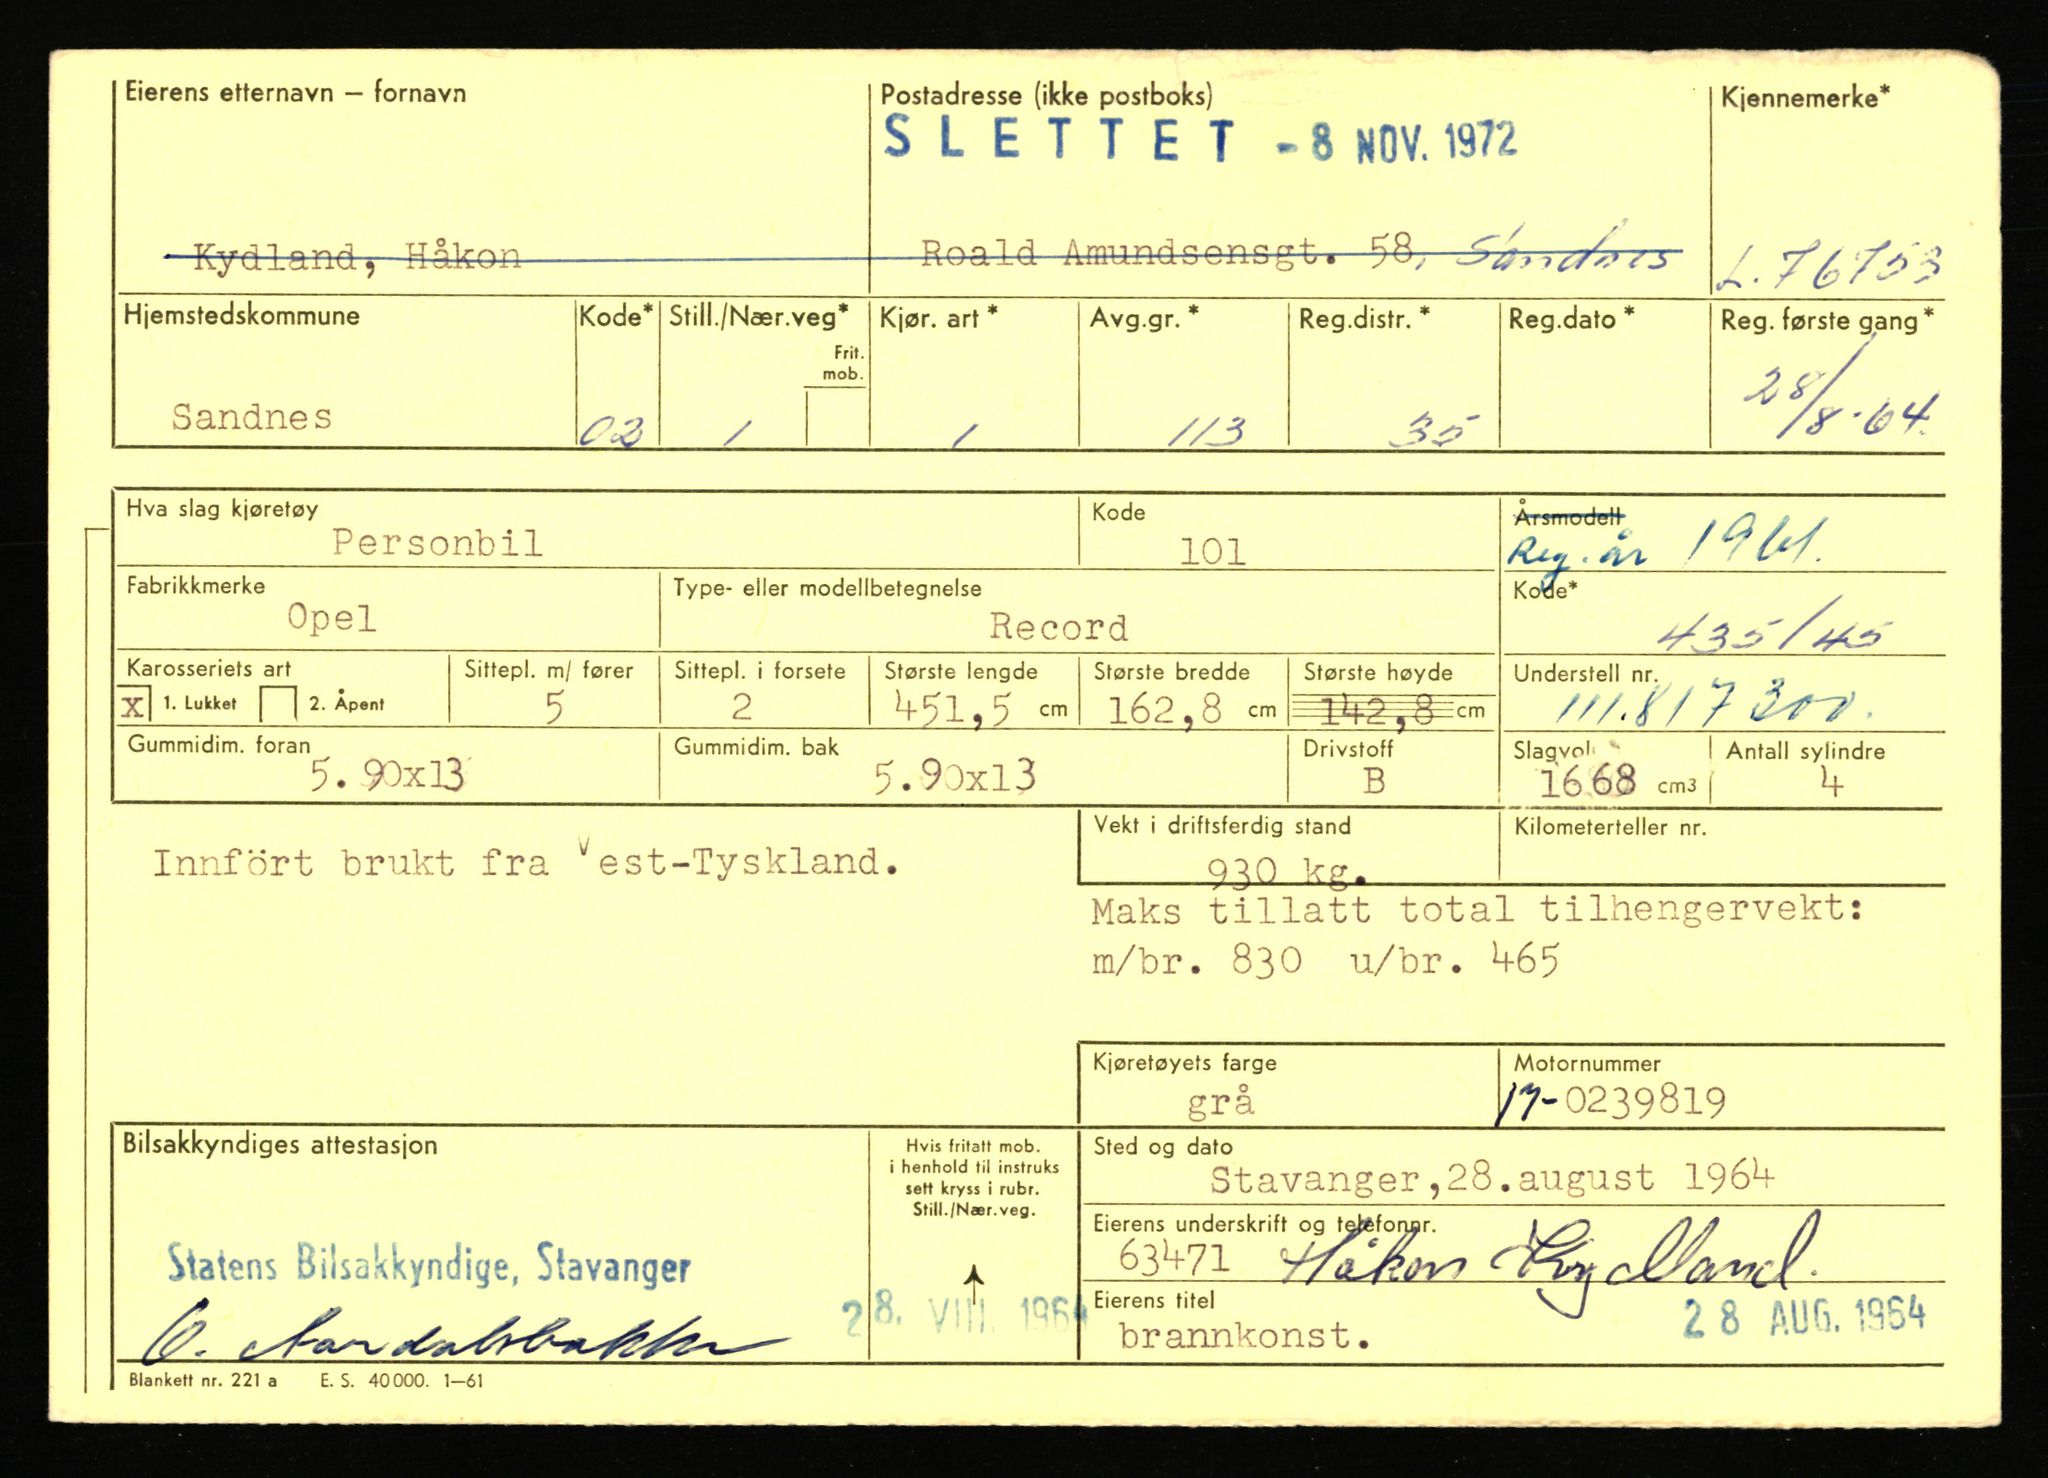 Eierens etternavn – fornavn
Postadresse (ikke postboks)
Kjennemerke*
SLETTET - 8 NOV. 1972
Kydland, Håkon
Roald Amundsensgt. 58, Sandnes
L.76753
Hjemstedskommune
Kode*
Still./Nær.veg*
Frit. mob.
Kjør. art*
Avg.gr.*
Reg.distr.*
Reg.dato*
Reg. første gang*
Sandnes
02
1
1
113
35
28/8-64.
Hva slag kjøretøy
Personbil
Kode
101
Årsmodell
Reg. år 1961.
Fabrikkmerke
Opel
Type- eller modellbetegnelse
Record
Kode*
435/45
Karosseriets art
x 1. Lukket 2. Åpent
Sittepl. m/ fører
5
Sittepl. i forsete
2
Største lengde
451,5 cm
Største bredde
162,8 cm
Største høyde
142,8 cm
Understell nr.
111.817300.
Gummidim. foran
5.90x13
Gummidim. bak
5.90x13
Drivstoff
B
Slagvol.
1668 cm3
Antall sylindre
4
Innfört brukt fra Vest-Tyskland.
Vekt i driftsferdig stand
930 kg.
Kilometerteller nr.
Maks tillatt total tilhengervekt:
m/br. 830 u/br. 465
Kjøretøyets farge
grå
Motornummer
17-0239819
Bilsakkyndiges attestasjon
Hvis fritatt mob.
i henhold til instruks
sett kryss i rubr.
Still./Nær.veg.
Sted og dato
Stavanger,28.august 1964
Eierens underskrift og telefonnr.
63471 Håkon Kydland.
Statens Bilsakkyndige, Stavanger
28. VIII. 1964
Eierens titel
brannkonst.
28 AUG. 1964
O. Aardalsbakke
Blankett nr. 221 a E. S. 40000. 1–61